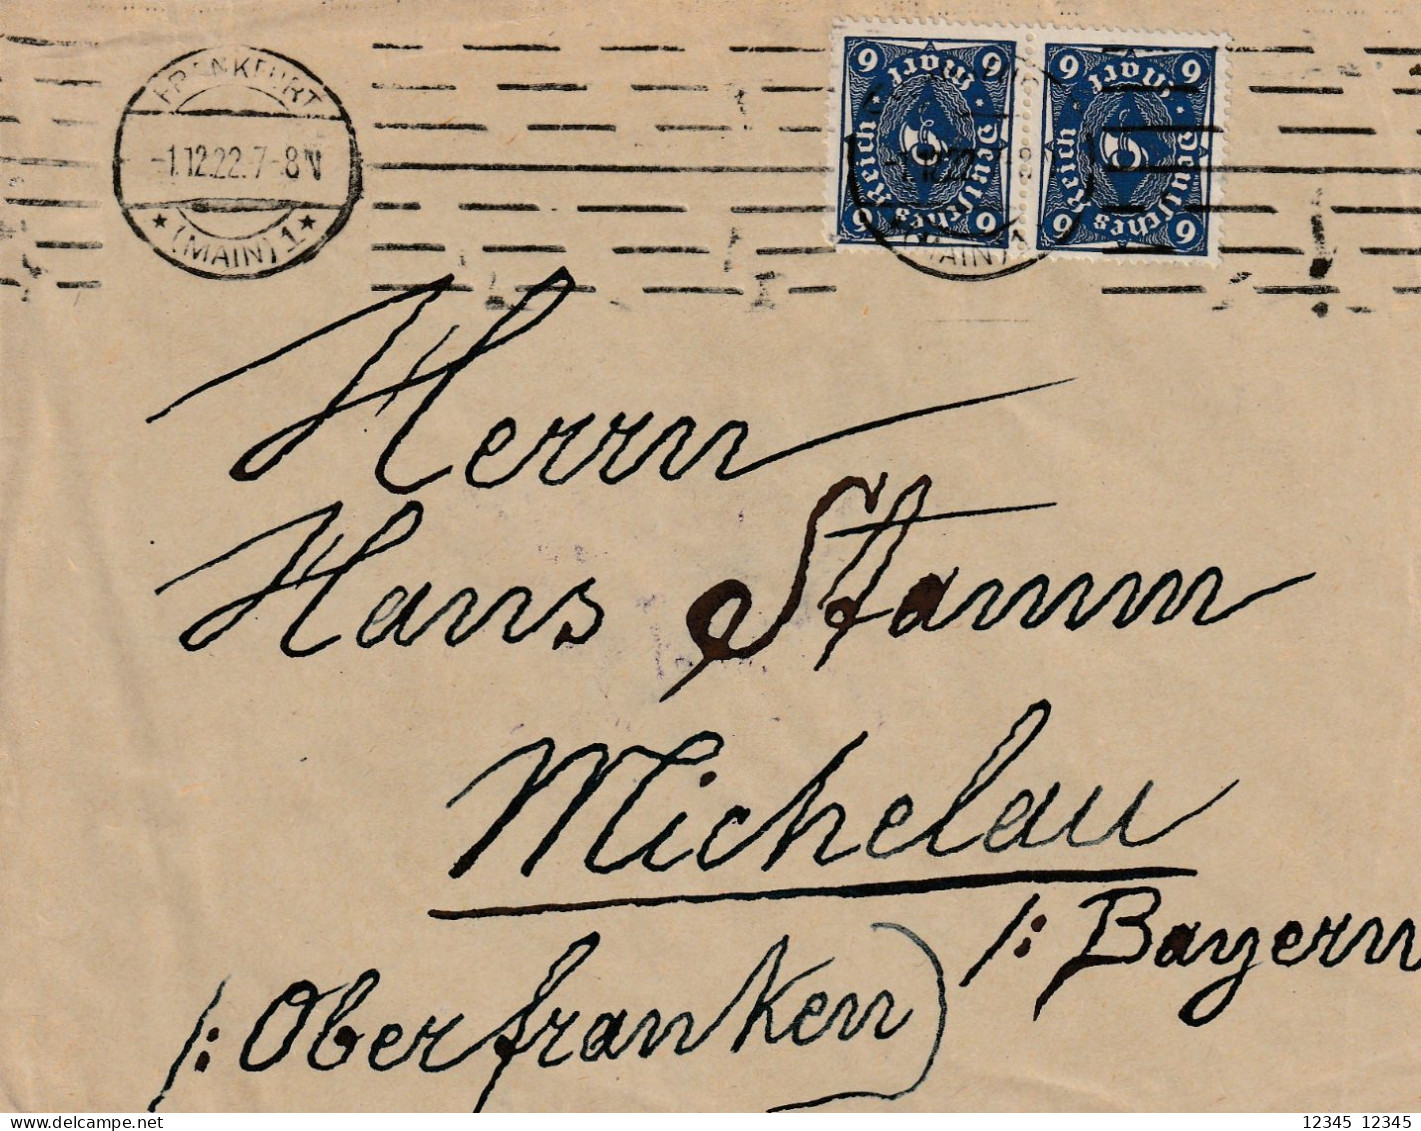 FRANKFURT
-1.12.22.7-8 V
★ (MAIN) 1 ★
6 Mark 6
Deutsches Reich
6
6 6
6 Mark 6
Deutsches Reich
6
6 6
-1.12.22.
(MAIN) 1
Herrn
Hans Stamm
Michelau
/: Bayern
/: Oberfranken)
delcampe.net
12345 12345